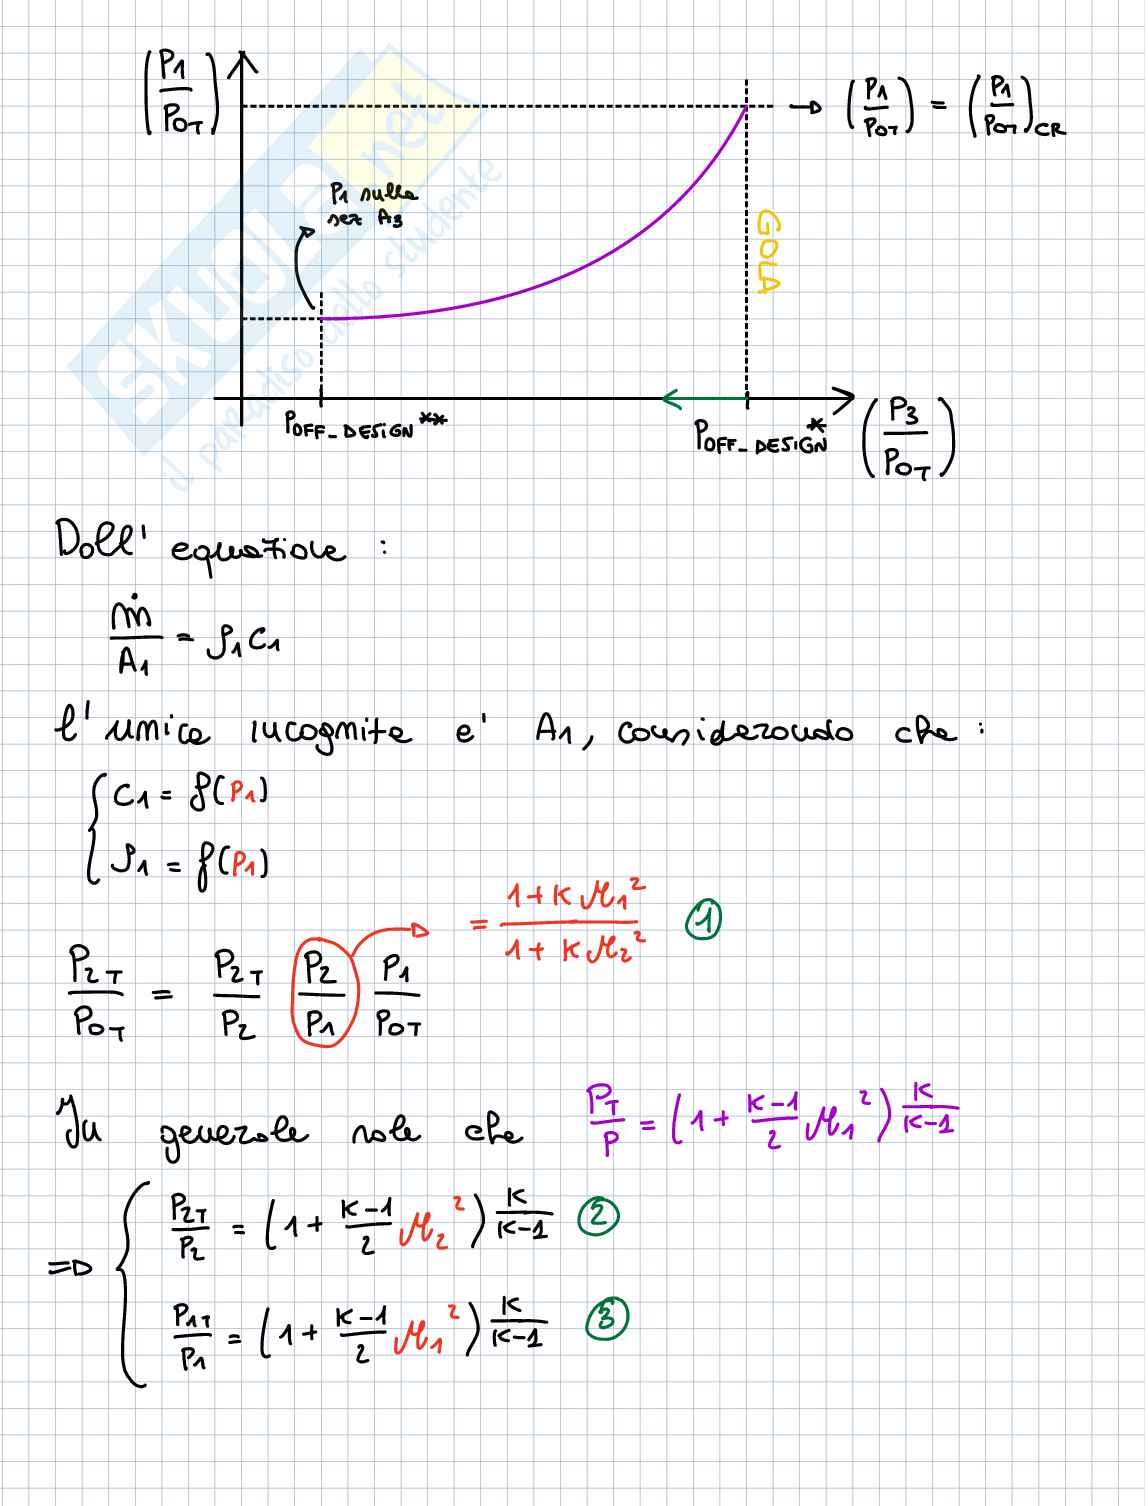 (P1/P0T)
→ (P1/P0T) = (P1/P0T)CR
P1 sulla
sez A3
GOLA
POFF_DESIGN**
POFF_DESIGN*
(P3/P0T)
SKUOLA.net
il paradiso dello studente
Dall' equazione :
ṁ/A1 = ρ1 C1
l' unica incognita e' A1, considerando che :
{ C1 = f(P1)
ρ1 = f(P1)
P2T/P0T = P2T/P2 P2/P1 P1/P0T → = (1+K M1²)/(1+K M2²) ①
In generale vale che PT/P = (1 + (K-1)/2 M1²)^(K/(K-1))
⇒ { P2T/P2 = (1 + (K-1)/2 M2²)^(K/(K-1)) ②
P1T/P1 = (1 + (K-1)/2 M1²)^(K/(K-1)) ③